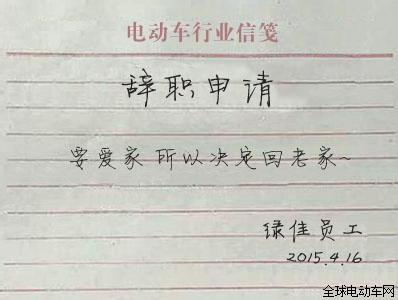 电动车行业信笺
辞职申请
要爱家 所以决定回老家~
绿佳员工
2015.4.16
全球电动车网